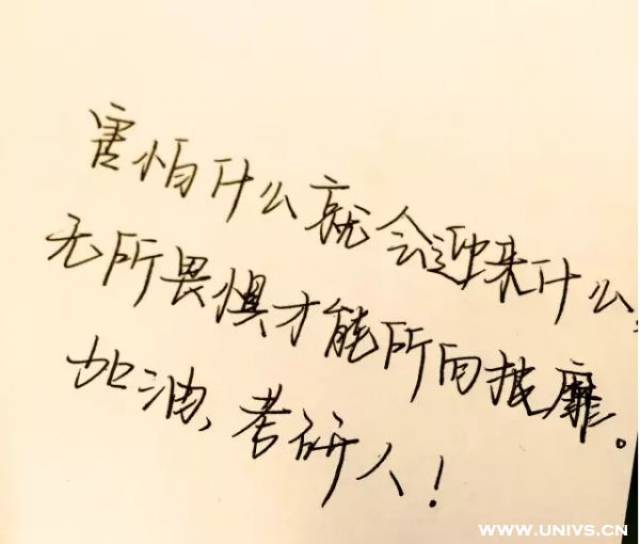 害怕什么就会迎来什么,
无所畏惧才能所向披靡。
加油、考研人!
WWW.UNIVS.CN